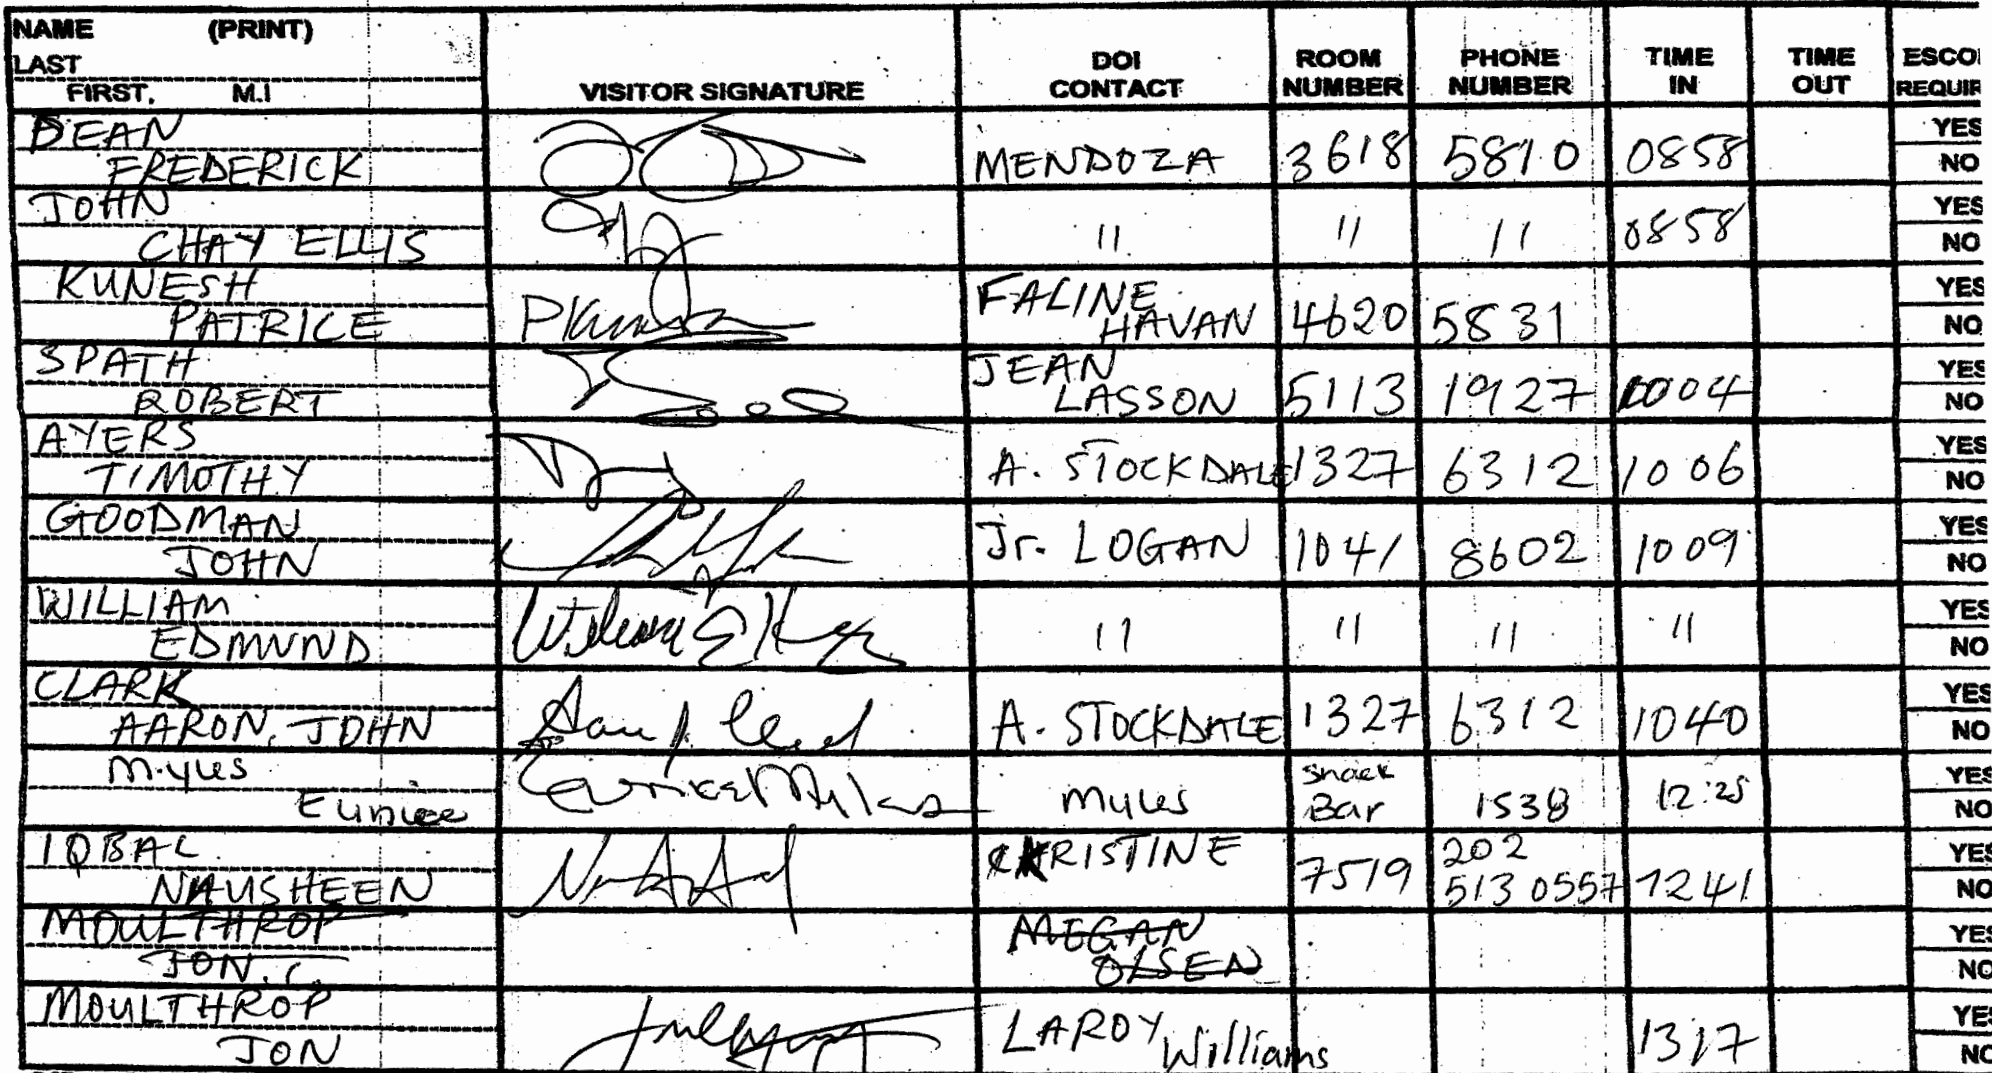 NAME (PRINT)
LAST
FIRST, M.I
VISITOR SIGNATURE
DOI CONTACT
ROOM NUMBER
PHONE NUMBER
TIME IN
TIME OUT
ESCO
REQUIR
DEAN
FREDERICK
MENDOZA 3618 5810 0858
YES
NO
JOHN
CHAY ELLIS
" " " 0858
YES
NO
KUNESH
PATRICE
FALINE
HAVAN 4620 5831
YES
NO
SPATH
ROBERT
JEAN
LASSON 5113 1927 1004
YES
NO
AYERS
TIMOTHY
A. STOCKDALE 1327 6312 1006
YES
NO
GOODMAN
JOHN
Jr. LOGAN 1041 8602 1009
YES
NO
WILLIAM
EDMUND
" " " "
YES
NO
CLARK
AARON, JOHN
A. STOCKDALE 1327 6312 1040
YES
NO
Myles
Eunice
Eunice Myles
Myles
Snack
Bar 1538 12:25
YES
NO
IQBAL
NAUSHEEN
CHRISTINE
7519
202
513 0557 1241
YES
NO
MOULTHROP
JON
MEGAN
OLSEN
YES
NO
MOULTHROP
JON
LAROY Williams 1317
YES
NO